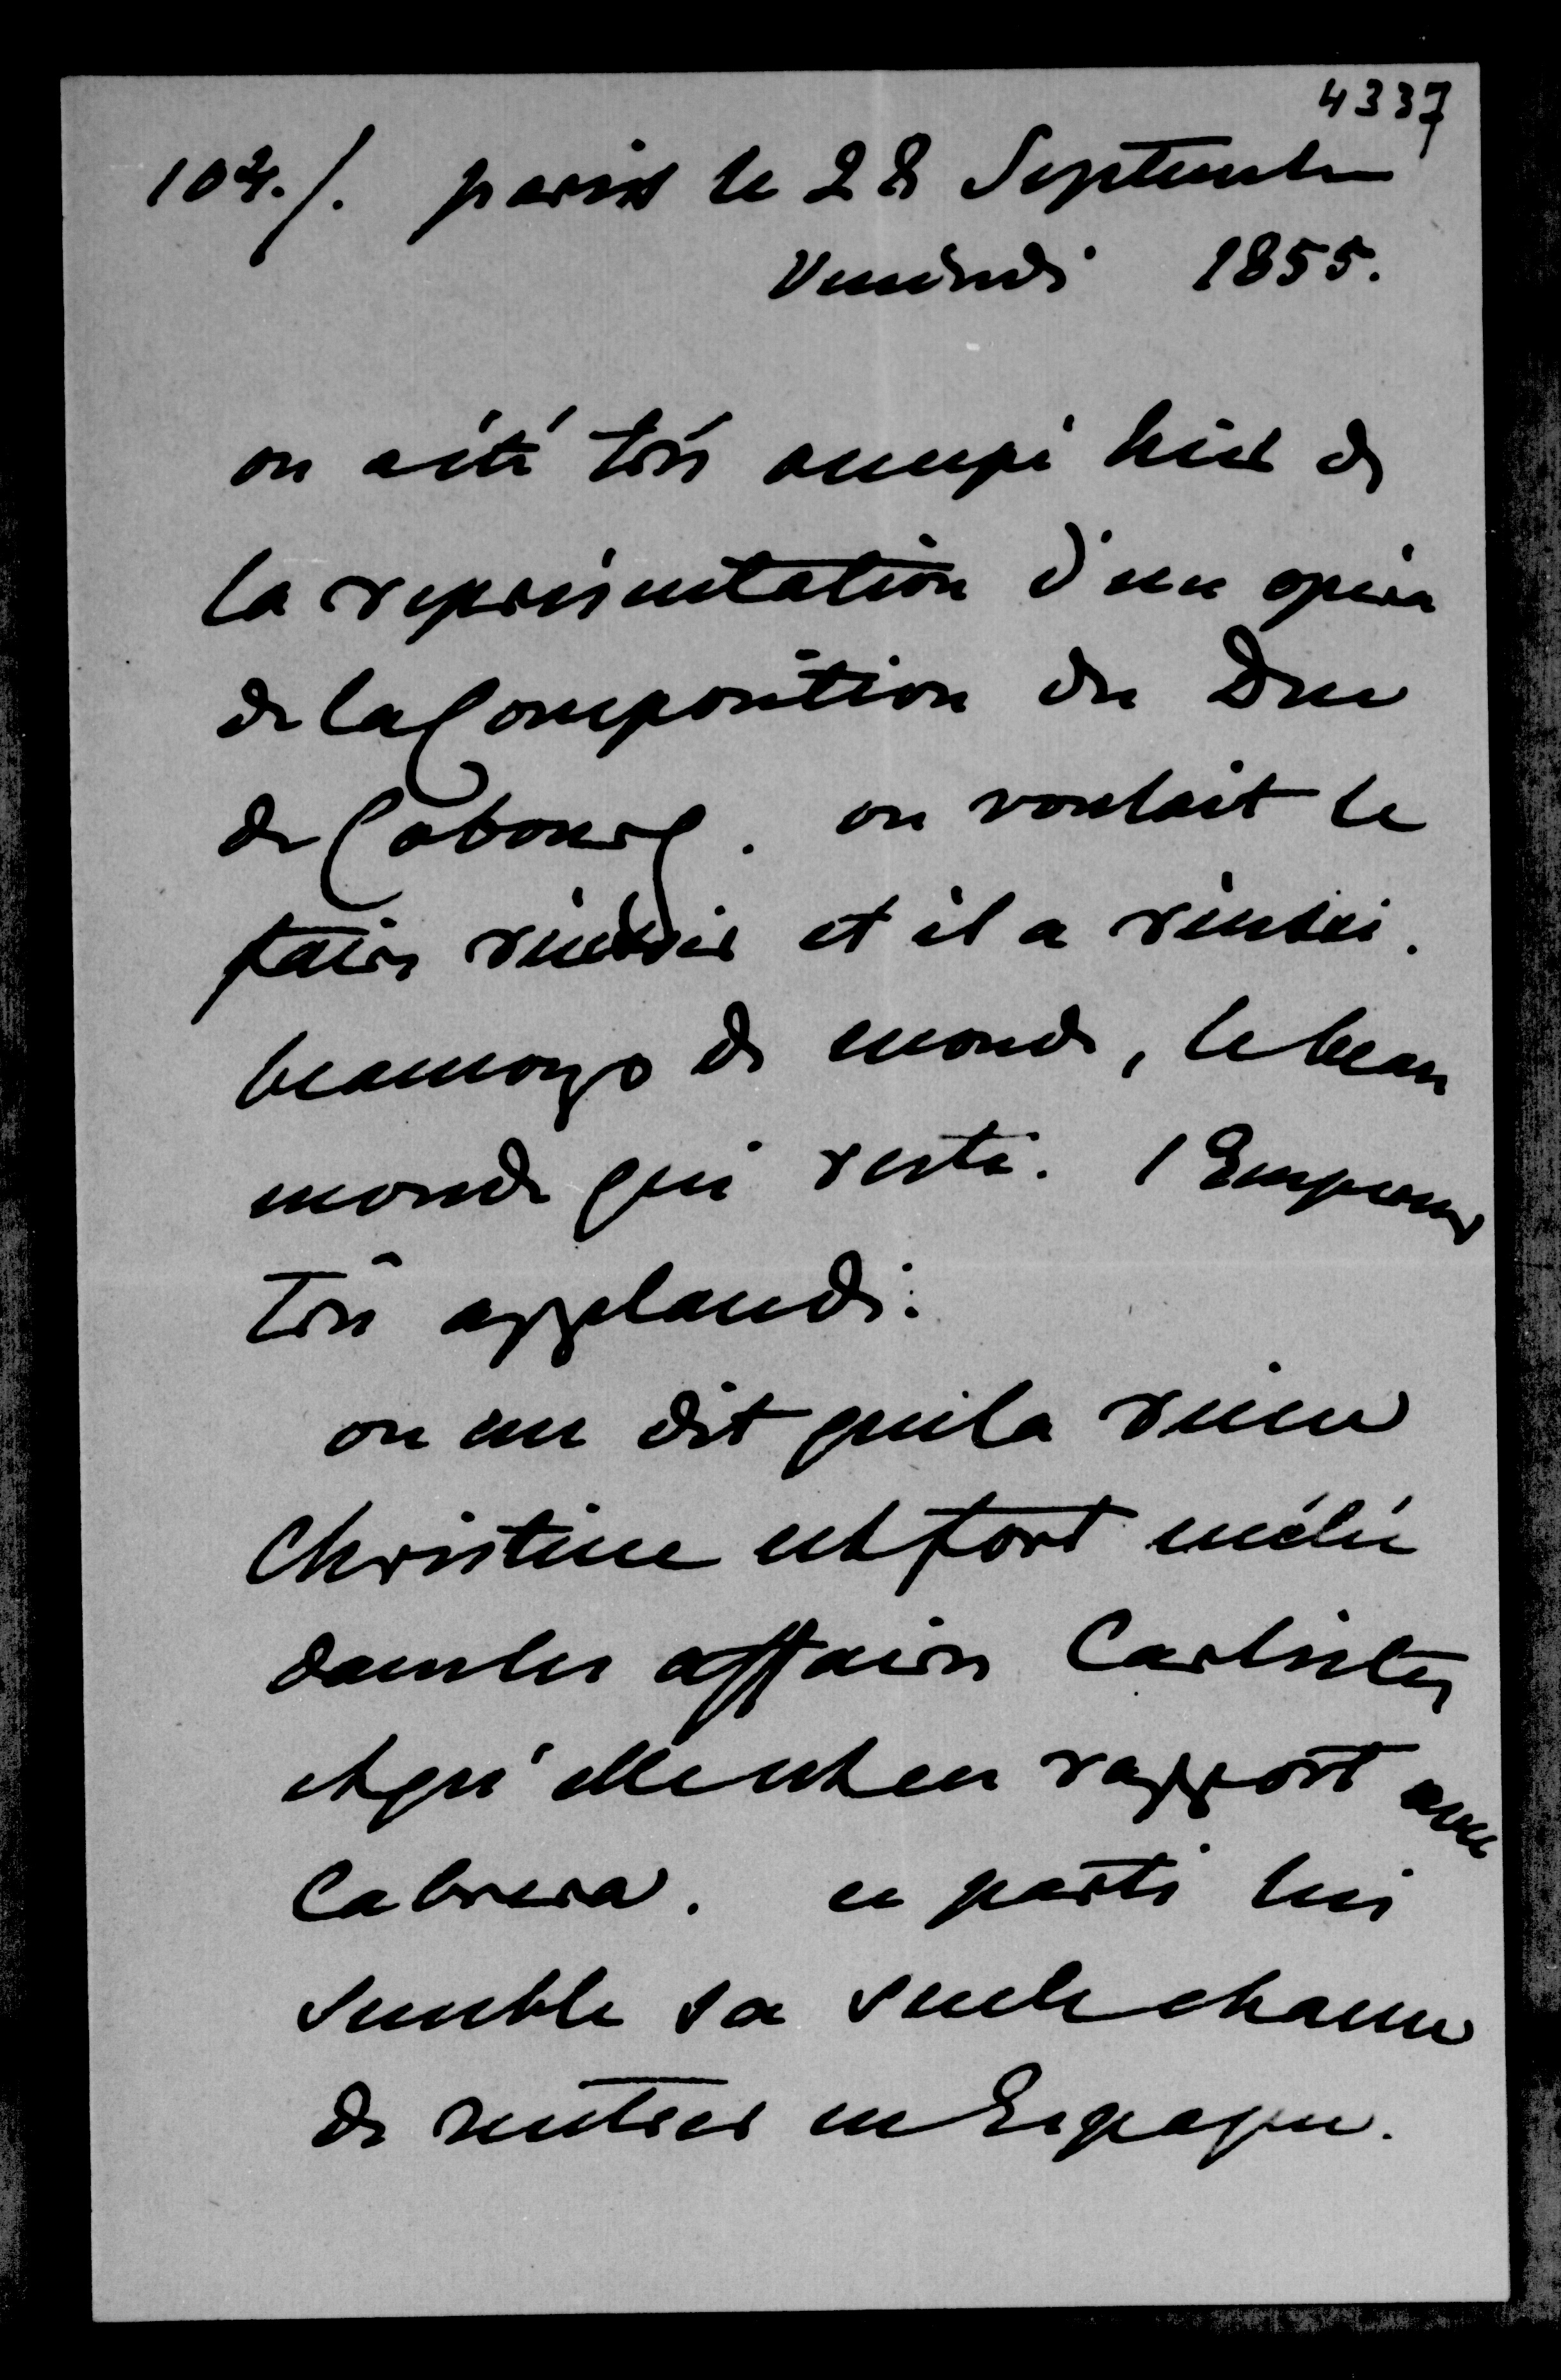 4337
104./. paris le 28 Septembre
Vendredi 1855.
on a été très occupé hier de
la représentation d'un opéra
de la Composition du Duc
de Cobourg. on voulait le
faire réussir et il a réussi.
beaucoup de monde, le beau
monde qui reste. l'Empereur
très applaudi.
on me dit que la reine
Christine est fort mêlée
dans les affaires Carlistes
et qu'elle est en rapport avec
Cabrera. ce parti lui
semble sa seule chance
de rentrer en Espagne.